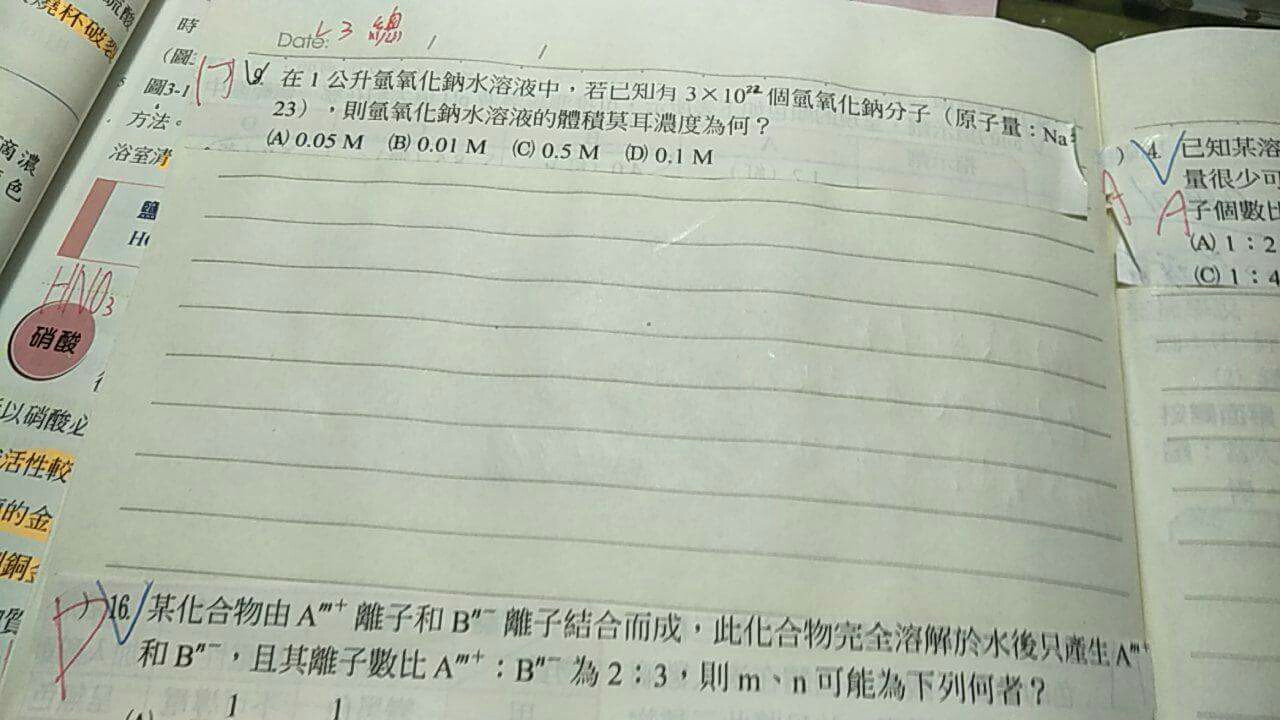 燒杯破裂
時
(圖
圖3-1
方法。
浴室清
滴濃
色
HNO3
硝酸
以硝酸必
活性較
的金
銅
Date: L3 總 / /
9. 在 1 公升氫氧化鈉水溶液中，若已知有 3×10²² 個氫氧化鈉分子（原子量：Na
23），則氫氧化鈉水溶液的體積莫耳濃度為何？
(A) 0.05 M (B) 0.01 M (C) 0.5 M (D) 0.1 M
16. 某化合物由 Aᵐ⁺ 離子和 Bⁿ⁻ 離子結合而成，此化合物完全溶解於水後只產生 Aᵐ⁺
和 Bⁿ⁻，且其離子數比 Aᵐ⁺：Bⁿ⁻ 為 2：3，則 m、n 可能為下列何者？
(A) 1 1
) 4. 已知某溶
量很少可
A A 子個數比
(A) 1：2
(C) 1：4